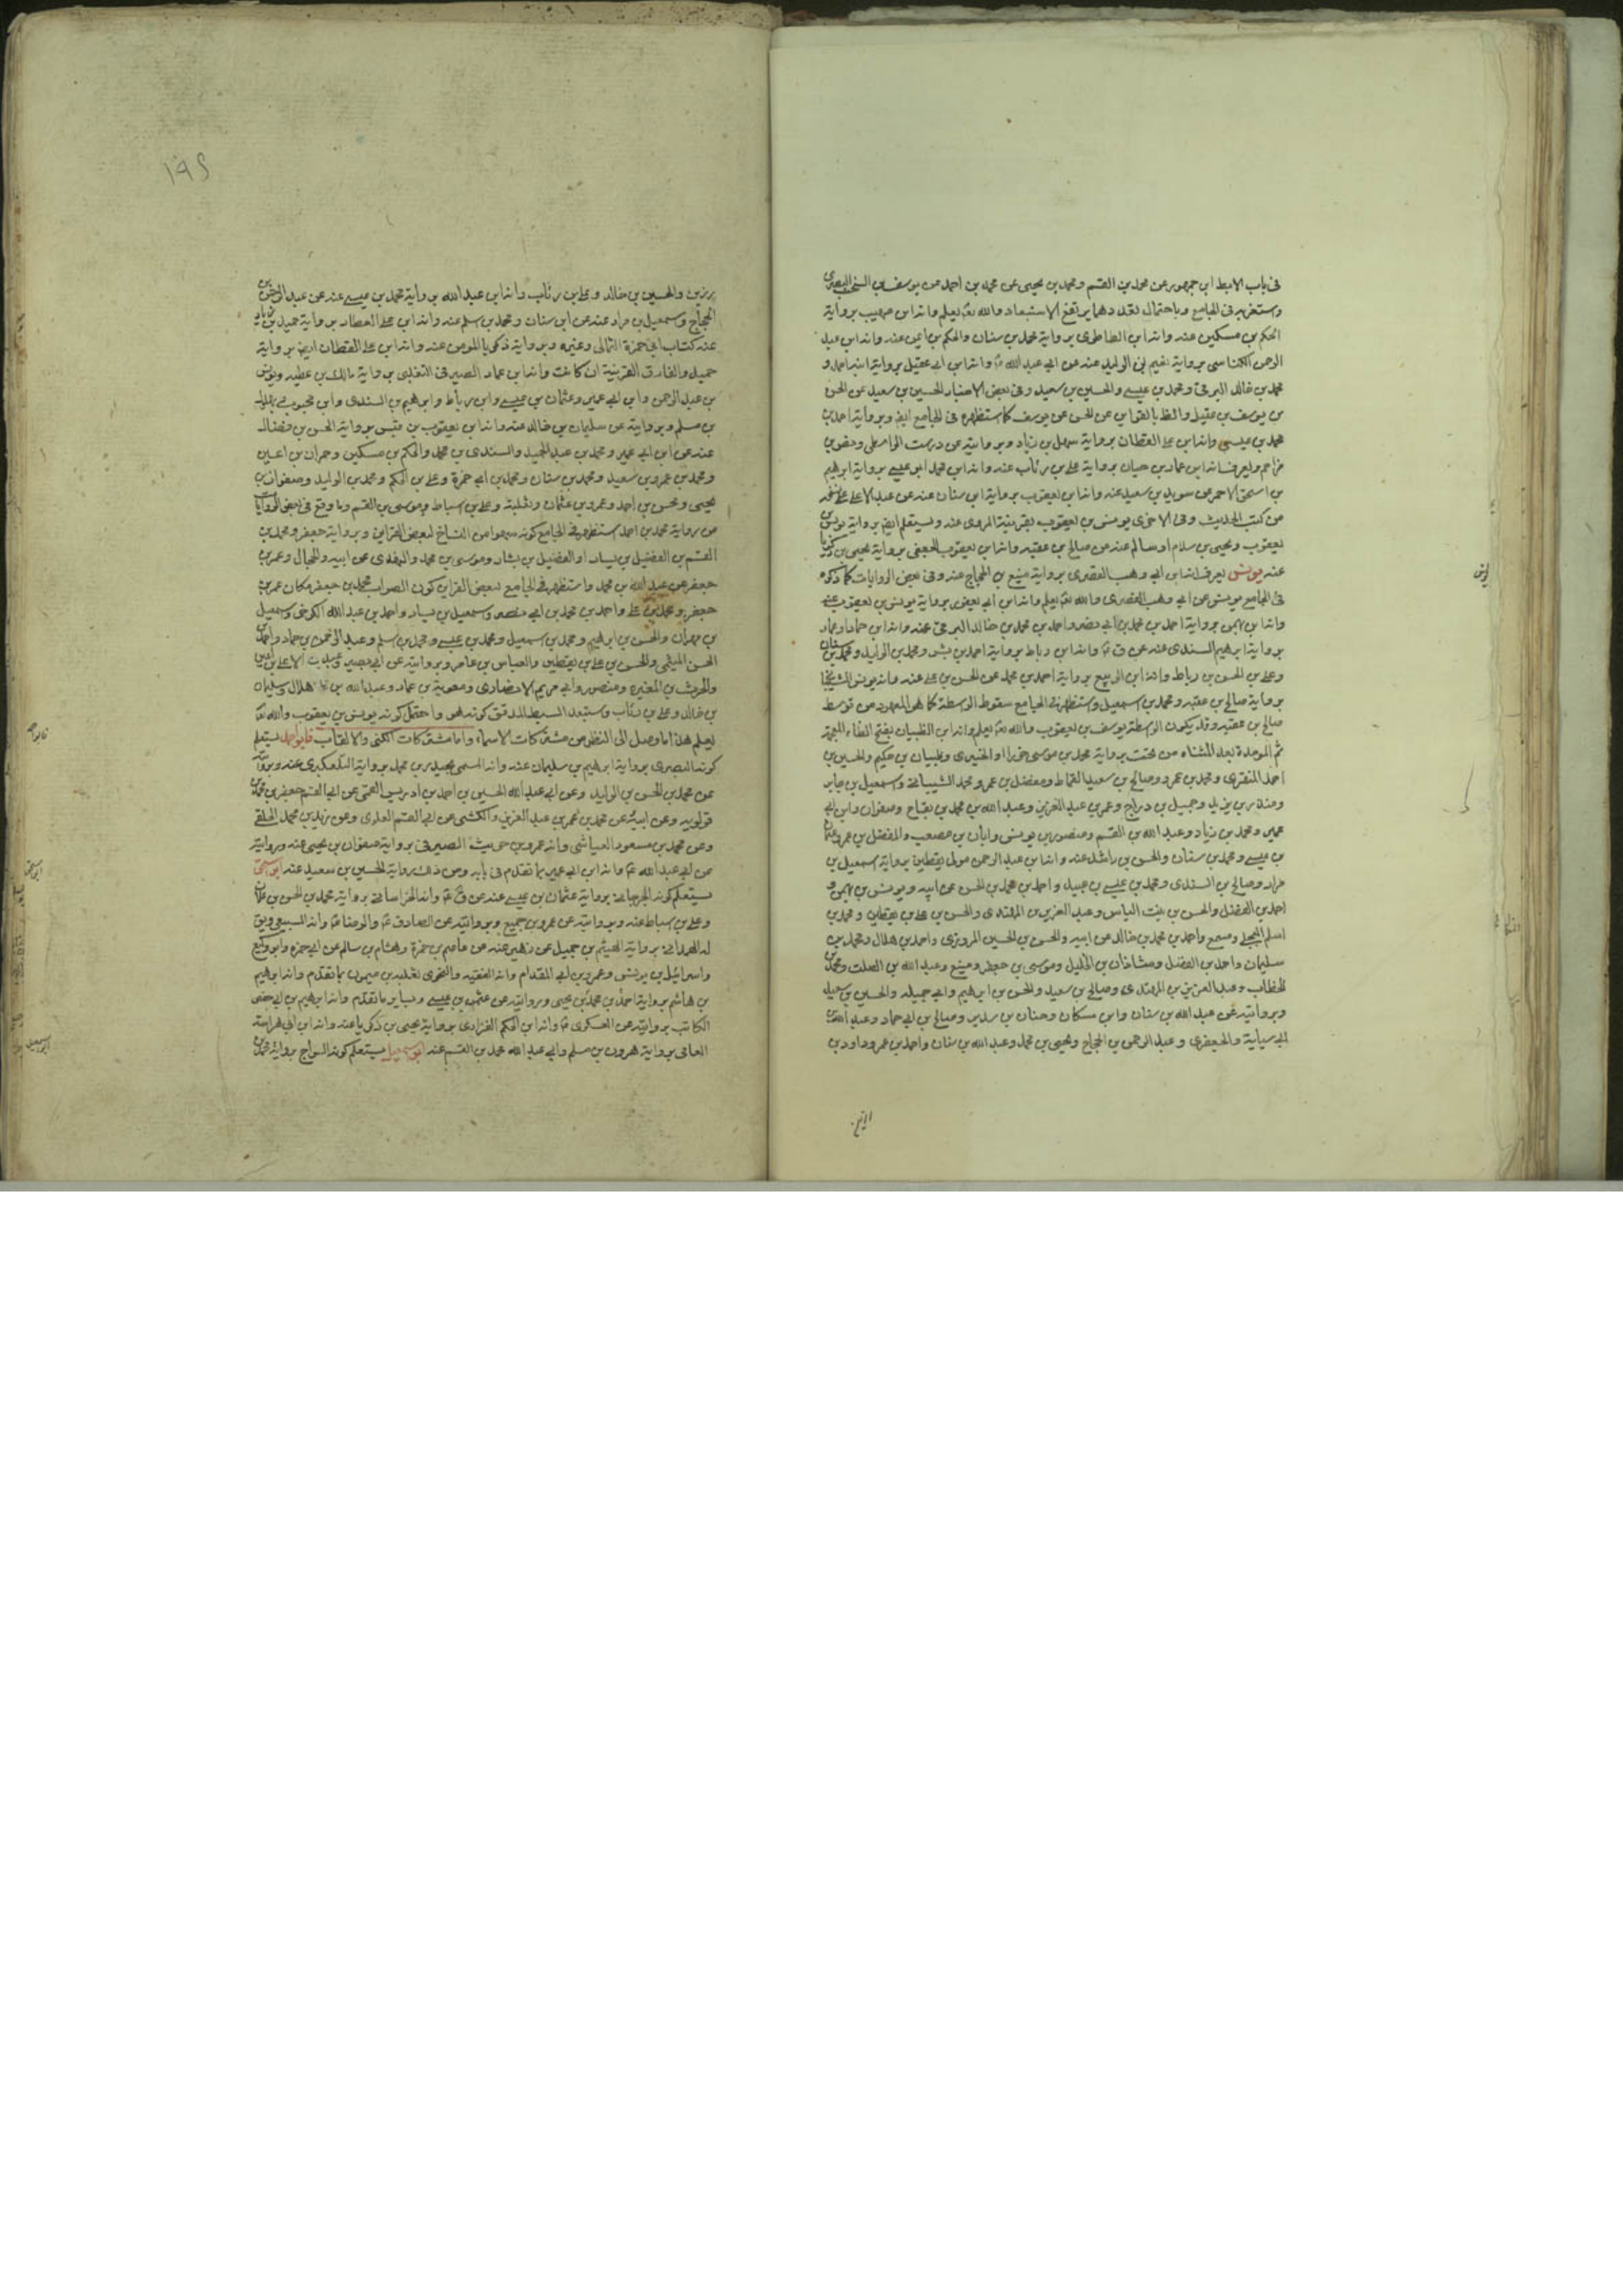 في باب الابط ابن جمهور عن محمد بن القسم ومحمد بن يحيى عن محمد بن احمد عن يوسف بن السخت البصرى
وستغربه في الجامع وباحتمال تعدد هما يرتفع الاستبعاد والله تع يعلم وانه ابن صهيب برواية
الحكم بن مسكين عنه وانه ابن الطاطرى برواية محمد بن سنان والحكم بن ايمن عنه وانه ابن عبد
الرحمن الكناسى برواية نعيم بن الوليد عنه عن ابي عبد الله ع وانه ابن ابي عقيل برواية ابنه احمد و
محمد بن خالد البرقي ومحمد بن عيسى والحسين بن سعيد وفي بعض الاخبار الحسين بن سعيد عن الحسن
بن يوسف بن عقيل والظ بالقراين عن الحسن عن يوسف كما استظهره في الجامع ايض وبرواية احمد بن
محمد بن عيسى وانه ابن علي القطان برواية سهل بن زياد وبروايته عن درست الواسطى وحفص بن
مزاحم وليعرف انه ابن عماد بن حيان برواية علي بن رئاب عنه وانه ابن محمد ابو عيسى برواية ابرهيم
بن اسحق الاحمر عن سويد بن سعيد عنه وانه ابن يعقوب برواية ابن سنان عنه عن عبد الاعلى
من كتب الحديث وفي الاخرى يونس بن يعقوب بقرينة المروى عنه وسيعلم ايض برواية يونس بن
يعقوب ويحيى بن سلام او سالم عنه عن صالح بن عقبه وانه ابن يعقوب الجعفى برواية يحيى بن زكريا
عنه يونس يعرف انه ابن ابي وهب القصرى برواية منيع بن الحجاج عنه وفي بعض الروايات كما ذكره
في الجامع يونس عن ابي وهب القصرى والله تع يعلم وانه ابن ابي يعفور برواية يونس بن يعقوب عنه
وانه ابن بهمن برواية احمد بن محمد بن ابي نصر واحمد بن محمد بن خالد البرقي عنه وانه ابن حماد
برواية ابرهيم السندى عنه عن ق ع وانه ابن رباط برواية احمد بن بشر ومحمد بن الوليد ومحمد بن سنان
وعلي بن الحسن بن رباط وانه ابن الربيع برواية احمد بن محمد عن الحسن بن علي عنه وانه يونس الشيبانى
برواية صالح بن عقبه ومحمد بن اسمعيل وستظهر في الجامع سقوط الوسطة كما هو المعهود من توسط
صالح بن عقبه وقد يكون الوسطة يوسف بن يعقوب والله تع يعلم وانه ابن الظبيان بفتح الظاء المعجمة
ثم الموحدة بعد المثناه من تحت برواية محمد بن موسى خورا والخيبرى وظبيان بن حكيم والحسين بن
احمد المنقرى ومحمد بن عمرو وصالح بن سعيد القماط ومفضل بن عمر ومحمد الشيبانى واسمعيل بن جابر
ومنذر بن يزيد وجميل بن دراج وعمر بن عبد العزيز وعبد الله بن محمد بن نجاح وصفوان وابن ابي
عمير ومحمد بن زياد وعبد الله بن القسم ومنصور بن يونس وابان بن مصعب والمفضل بن عمر وعثمان
بن عيسى ومحمد بن سنان والحسن بن راشد عنه وانه ابن عبد الرحمن مولى يقطين برواية اسمعيل بن
مرار وصالح بن السندى ومحمد بن عيسى بن عبيد واحمد بن محمد بن الحسن عن ابيه ويونس بن بهمن و
احمد بن الفضل والحسن بن بنت الياس وعبد العزيز بن المهتدى والحسن بن علي بن يقطين ومحمد بن
اسلم البجلي ومسمع واحمد بن محمد بن خالد عن ابيه والحسن بن الحسين المروزى واحمد بن هلال ومحمد بن
سليمان واحمد بن الفضل وشاذان بن الخليل وموسى بن جعفر ومنيع وعبد الله بن الصلت ومحمد بن
الخطاب وعبد العزيز بن المهتدى وصالح بن سعيد والحسن بن ابرهيم وابي جميله والحسين بن سعيد
وبروايته عن عبد الله بن سنان وابن مسكان وحنان بن سدير وصالح بن ابي حماد وعبد الله بن
ابي سيابة والجعفرى وعبد الرحمن بن الحجاج ويحيى بن محمد وعبد الله بن سنان واحمد بن عمر وداود بن
يونس
١٩٥
برزين والحسين بن خالد وعلي بن رئاب وانه ابن عبد الله برواية محمد بن عيسى عنه عن عبد الرحمن بن
الحجاج وسمعيل بن مرار عنه عن ابن سنان ومحمد بن سلم عنه وانه ابن علي العطار برواية حميد بن زياد
عنه كتاب ابي حمزة الثمالى وغيره وبرواية ذكريا المومن عنه وانه ابن علي القطان ايض برواية
حميد والفارق القرينة ان كانت وانه ابن عماد الصيرفى التغلبى برواية مالك بن عطيه ويونس
بن عبد الرحمن وابن ابي عمير وعثمان بن عيسى وابن رباط وابرهيم بن السندى وابن محبوب
بن مسلم وبروايته عن سليمان بن خالد عنه وانه ابن يعقوب بن قيس برواية الحسن بن فضال
عنه عن ابن ابي عمير ومحمد بن عبد الحميد والسندى بن محمد والحكم بن مسكين وحمران بن اعين
ومحمد بن عمرو بن سعيد ومحمد بن سنان ومحمد بن ابي حمزة وعلي بن الحكم ومحمد بن الوليد وصفوان بن
يحيى ومحسن بن احمد وعمرو بن عثمان وثعلبة وعلي بن اسباط وموسى بن القسم وما وقع في بعض الروايات
من رواية محمد بن احمد استظهر في الجامع كونه سهوا من النساخ لبعض القراين وبرواية جعفر ومحمد بن
القسم بن الفضيل بن يسار او الفضيل بن بشار وموسى بن محمد والنهدى عن ابيه والحجال وعمر بن
جعفر عن عبد الله بن محمد واستظهر في الجامع لبعض القراين كون الصواب محمد بن جعفر مكان عمر بن
جعفر ومحمد بن علي واحمد بن محمد بن ابي نصر واسمعيل بن يسار واحمد بن عبد الله الكرخى واسمعيل
بن مهران والحسن بن ابرهيم ومحمد بن اسمعيل ومحمد بن عيسى ومحمد بن اسلم وعبد الرحمن بن حماد واحمد بن
الحسن الميثمى والحسن بن علي بن يقطين والعباس بن عامر وبروايته عن ابي بصير وعبد الاعلى بن اعين
والحرث بن المغيره ومنصور وابي مريم الانصارى ومعوية بن عمار وعبد الله بن هلال وسليمان
بن خالد وعلي بن رئاب وستبعد السبط المدقق كونه هو واحتمل كونه يونس بن يعقوب والله تع
يعلم هذا ما وصل الى النظر من مشتركات الاسماء واما مشتركات الكنى والالقاب فابو احمد يستعلم
كونه البصرى برواية ابرهيم بن سليمان عنه وانه المسمى بحيدر بن محمد برواية التلعكبرى عنه وبروايته
عن محمد بن الحسن بن الوليد وعن ابي عبد الله الحسين بن احمد بن ادريس القمى عن ابي القسم جعفر بن محمد بن
قولويه وعن ابيه عن محمد بن عمر بن عبد العزيز والكشى عن ابي القسم العلوى وعن زيد بن محمد الحلقى
وعن محمد بن مسعود العياشى وانه عمرو بن حريث الصيرفى برواية صفوان بن يحيى عنه وبروايته
عن ابي عبد الله ع وانه ابن ابي عمير بما تقدم في بابه ومن ذلك رواية الحسين بن سعيد عنه ابو اسحق
يستعلم كونه الجرجانى برواية عثمان بن عيسى عنه عن ق ع وانه الخراسانى برواية محمد بن الحسن بن علان
وعلي بن اسباط عنه وبروايته عن عمرو بن جميع وبروايته عن الصادق ع والرضا ع وانه السبيعى ويق
له الهمدانى برواية الهيثم بن جميل عن زهير عنه عن عاصم بن حمزة وهشام بن سالم عن ابي حمزه وابو وكيع
واسرائيل بن يونس وعمرو بن ابي المقدام وانه الفقيه والنحوى ثعلبه بن ميمون بما تقدم وانه ابرهيم
بن هاشم برواية احمد بن محمد بن يحيى وبروايته عن عثمن بن عيسى وسيايربا تقدم وانه ابرهيم بن ابي حفص
الكاتب بروايته عن العسكرى ع وانه ابن الحكم الفزارى برواية يحيى بن زكريا عنه وانه ابن ابي هراسة
برواية هرون بن مسلم وابي عبد الله محمد بن القسم عنه ابو اسمعيل يستعلم كونه السراج برواية محمد بن
ابو احمد
ابو اسحق
ابو اسمعيل